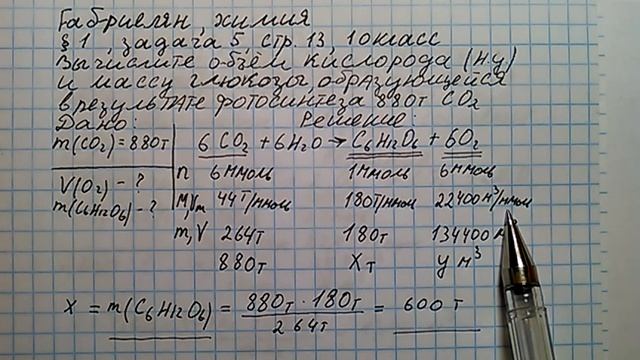 Габриелян, химия
§1, задача 5, стр. 13, 10 класс
Вычислите объём кислорода (н.у)
и массу глюкозы, образующейся
в результате фотосинтеза 880т CO₂
Дано: Решение:
m(CO₂)=880т 6CO₂ + 6H₂O → C₆H₁₂O₆ + 6O₂
n 6 ммоль 1 ммоль 6 ммоль
V(O₂) - ? M, Vm 44т/ммоль 180т/ммоль 22400м³/ммоль
m(C₆H₁₂O₆) - ?
m, V 264т 180т 134400
880т Xт y м³
X = m(C₆H₁₂O₆) = 880т · 180т / 264т = 600 т